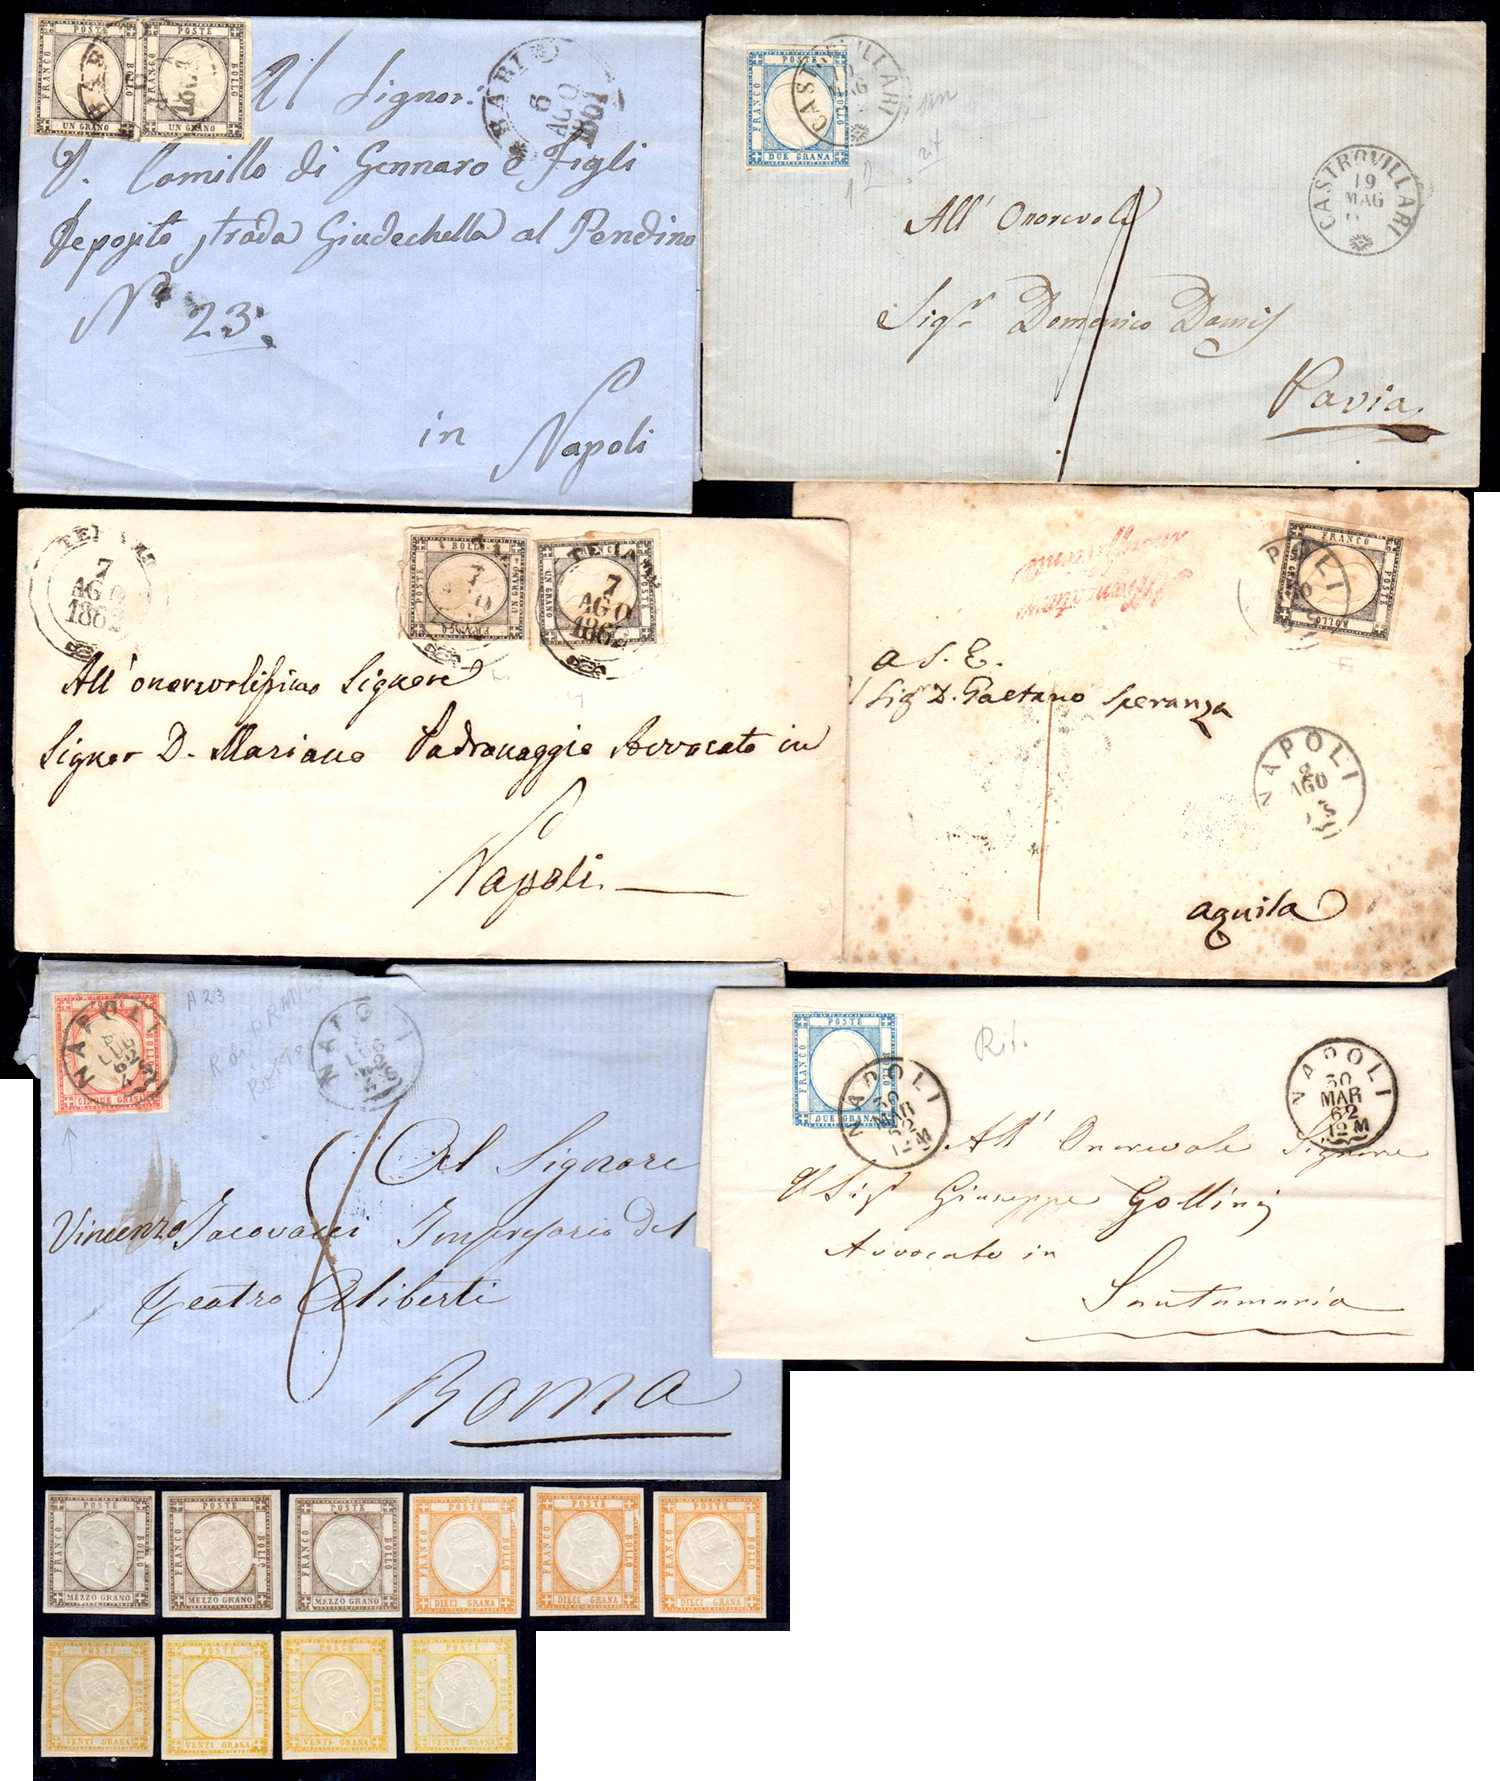 POSTE
FRANCO
BOLLO
UN GRANO
POSTE
FRANCO
BOLLO
UN GRANO
BARI
6
AGO
1861
Al Signor:
D. Camillo di Gennaro e Figli
Deposito strada Giudechella al Pendino
N° 23.
in Napoli
POSTE
FRANCO
BOLLO
DUE GRANA
CASTROVILLARI
MAG
12
CASTROVILLARI
19
MAG
All' Onorevole
Sigr. Domenico Damis
Pavia
7
AGO
1862
BOLLO
POSTE
UN GRANO
FRANCO
7
AGO
186
UN GRANO
POSTE
All' onorevolissimo Signore
Signor D. Mariano Padronaggio Avvocato in
Napoli
FRANCO
POSTE
BOLLO
a S. E.
Sigr D. Gaetano Speranza
NAPOLI
AGO
aquila
POSTE
BOLLO
CINQUE GRANA
NAPOLI
LUG
62
A 23
NAPOLI
LUG
Al Signore
Vincenzo Jacovacci Impresario del
Teatro Aliberti
Roma
POSTE
FRANCO
BOLLO
DUE GRANA
NAPOLI
30
MAR
62
12 M
Rit.
NAPOLI
30
MAR
62
12 M
All' Onorevole Signore
Il Sigr Giuseppe Gollini
Avvocato in
Santamaria
POSTE
FRANCO
BOLLO
MEZZO GRANO
POSTE
FRANCO
BOLLO
MEZZO GRANO
POSTE
FRANCO
BOLLO
MEZZO GRANO
POSTE
FRANCO
BOLLO
DIECI GRANA
POSTE
FRANCO
BOLLO
DIECI GRANA
POSTE
FRANCO
BOLLO
DIECI GRANA
POSTE
FRANCO
BOLLO
VENTI GRANA
POSTE
FRANCO
BOLLO
VENTI GRANA
POSTE
FRANCO
BOLLO
VENTI GRANA
POSTE
FRANCO
BOLLO
VENTI GRANA